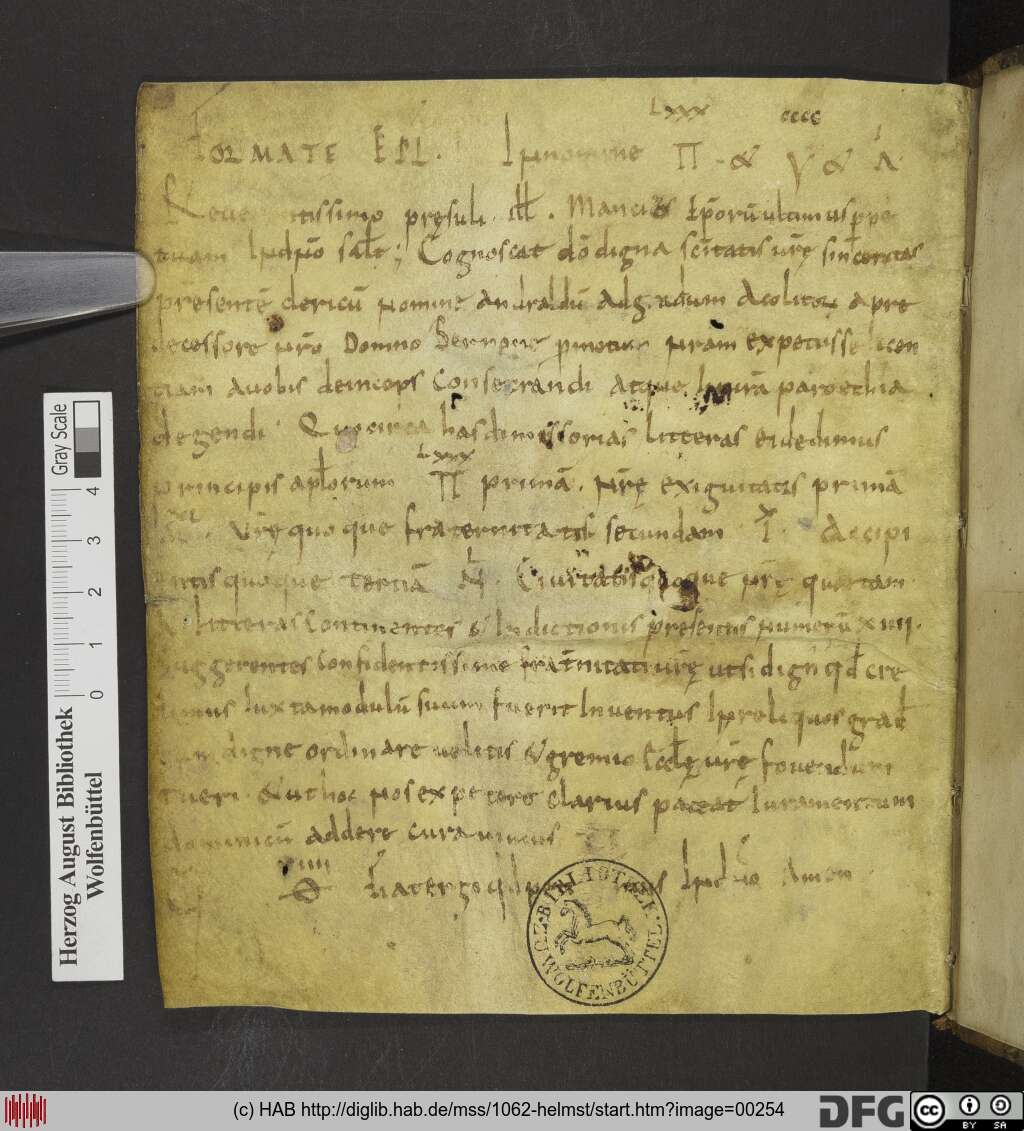 LXXX cccc I
FORMATE EPL. In nomine Π . & Υ & Α
Reve tissimo pręsuli ill. Mancio ep̄orū ultimus perpe
tuam In dn̄o salt; Cognoscat dō digna sc̄itatis vr̄ę sinceritas
presentē clericū nomine andraldū adgradum acolitor a pre
decessore nr̄o Domno Bernone pmotum nram expetisse licen
tiam avobis deinceps Consecrandi atque In urā parochia
degendi Quocirca has dimissorias litteras ei dedimus
LXXX
principis aplorum Π primā. Nr̄ę exiguitatis primā
Vr̄ę quoque fraternitatis secundam I. Accipi
L
entis quoque tertiā N. Civitatis quoque nr̄ę quartam
litteras Continentes & Indictionis presentis numerū XIIII.
Suggerentes Confidentissime frat̄nitati urę ut si dign̄ qd cre
dimus Iuxta modulū suum fuerit Inventus In reliquos grad
digne ordinare velitis & gremio Eccle urę fovendum
tueri & ut hoc nos expetere clarius pateat Iuramentum
dominicū addere curavimus
VIIII
In dn̄o Amen
BIBLIOTHEK ZU WOLFENBÜTTEL
Gray Scale
0 1 2 3 4
Herzog August Bibliothek
Wolfenbüttel
(c) HAB http://diglib.hab.de/mss/1062-helmst/start.htm?image=00254
DFG
cc BY SA